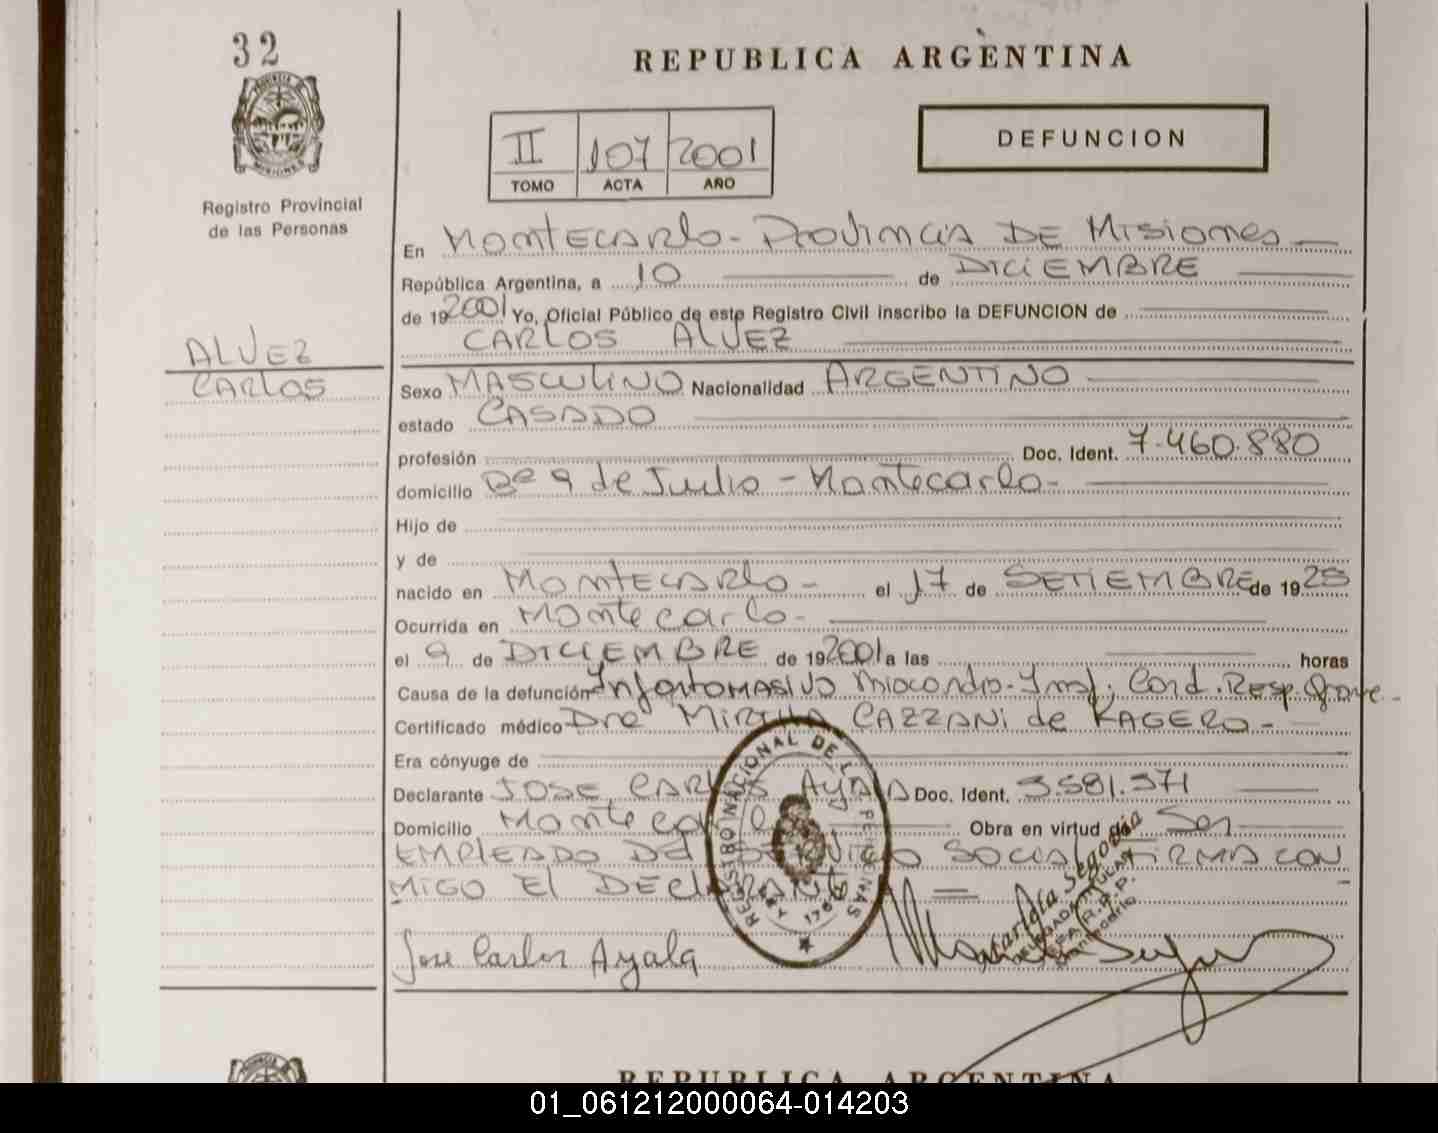 32
REPUBLICA ARGENTINA
DEFUNCION
II 107 2001
TOMO ACTA AÑO
Registro Provincial
de las Personas
En MONTECARLO - PROVINCIA DE MISIONES
República Argentina, a 10 de DICIEMBRE
de 192001 Yo, Oficial Público de este Registro Civil inscribo la DEFUNCION de
CARLOS ALVEZ
ALVEZ
CARLOS
Sexo MASCULINO Nacionalidad ARGENTINO
estado CASADO
profesión Doc. Ident. 7.460.880
domicilio Bº 9 de Julio - Montecarlo-
Hijo de
y de
nacido en MONTECARLO- el 17 de SETIEMBRE de 1925
Ocurrida en Montecarlo-
el 9 de DICIEMBRE de 192001 a las horas
Causa de la defunción Masivo Miocardio- Card. Resp.
Certificado médico Dra MIRTHA CAZZANI de KAGERO-
Era cónyuge de
Declarante JOSE CARLOS AYALA Doc. Ident. 3.581.371
Domicilio Montecarlo Obra en virtud de Ser
EMPLEADO DEL SERVICIO SOCIAL FIRMA CON
MIGO El DECLARANTE
REGISTRO NACIONAL DE LAS PERSONAS
Jose Carlos Ayala
Segovia
DELEGADA TITULAR
REPUBLICA ARGENTINA
01_061212000064-014203